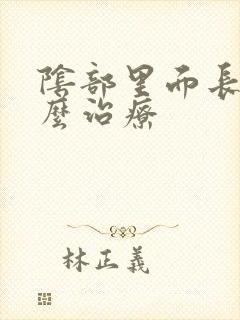 陰部里而長
麼治療
林正義